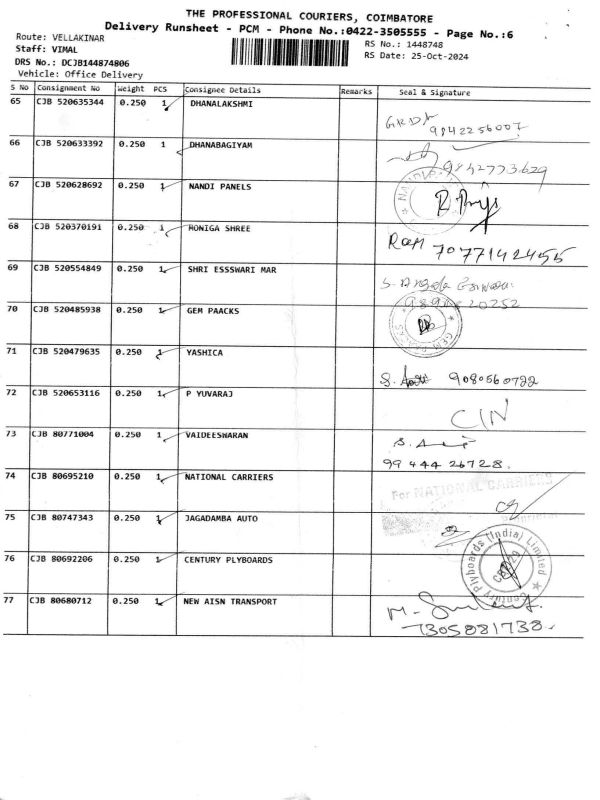 THE PROFESSIONAL COURIERS, COIMBATORE
Delivery Runsheet - PCM - Phone No.:0422-3505555 - Page No.:6
Route: VELLAKINAR
RS No.: 1448748
Staff: VIMAL
RS Date: 25-Oct-2024
DRS No.: DCJB144874806
Vehicle: Office Delivery
S No Consignment No Weight PCS Consignee Details Remarks Seal & Signature
65 CJB 520635344 0.250 1 DHANALAKSHMI
9842256007
66 CJB 520633392 0.250 1 DHANABAGIYAM
9842773629
67 CJB 520628692 0.250 1 NANDI PANELS
68 CJB 520370191 0.250 1 MONIGA SHREE
Ram 7077142455
69 CJB 520554849 0.250 1 SHRI ESSSWARI MAR
70 CJB 520485938 0.250 1 GEM PAACKS
71 CJB 520479635 0.250 1 YASHICA
9080560722
72 CJB 520653116 0.250 1 P YUVARAJ
CIN
73 CJB 80771004 0.250 1 VAIDEESWARAN
99444 26728.
74 CJB 80695210 0.250 1 NATIONAL CARRIERS
For NATIONAL CARRIERS
75 CJB 80747343 0.250 1 JAGADAMBA AUTO
76 CJB 80692206 0.250 1 CENTURY PLYBOARDS
Century Plyboards (India) Limited
77 CJB 80680712 0.250 1 NEW AISN TRANSPORT
7305081738.